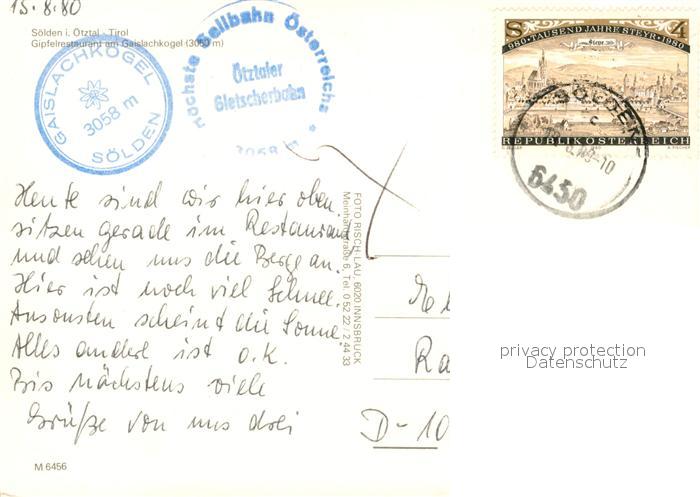 15.8.80
Sölden i. Ötztal - Tirol
Gipfelrestaurant am Gaislachkogel (3050 m)
GAISLACHKOGEL
3058 m
SÖLDEN
Höchste Seilbahn Österreichs
Ötztaler
Gletscherbahn
3058 m
S 4
980 · TAUSEND JAHRE STEYR · 1980
Steyr
REPUBLIK ÖSTERREICH
SÖLDEN
c
-10
6450
Heute sind wir hier oben,
sitzen gerade im Restaurant
und sehen uns die Berge an.
Hier ist noch viel Schnee.
Ansonsten scheint die Sonne.
Alles andere ist o.k.
Bis nächstens viele
Grüße von uns drei
FOTO RISCH-LAU, 6020 INNSBRUCK
Meinhardstraße 6, Tel. 0 52 22 / 2 44 33
Ra
D-10
M 6456
privacy protection
Datenschutz